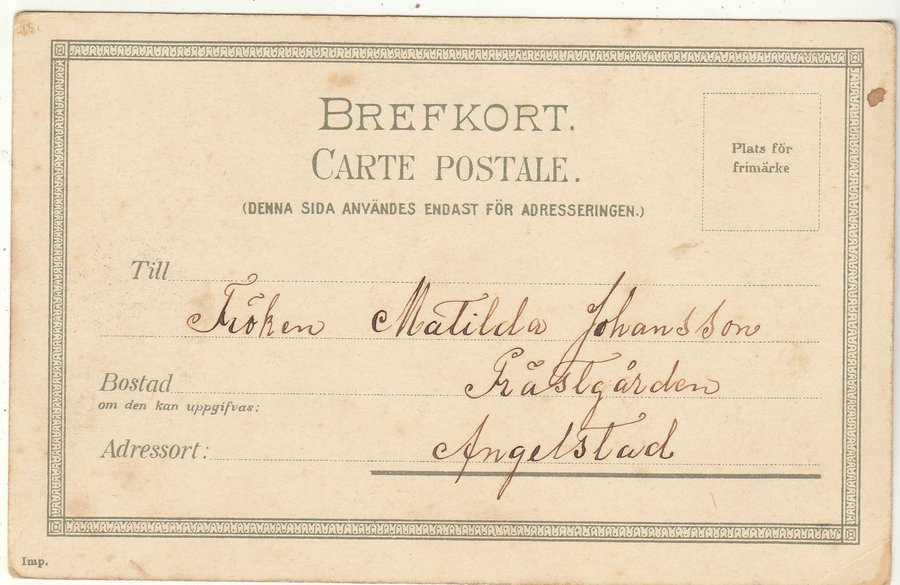 BREFKORT.
CARTE POSTALE.
(DENNA SIDA ANVÄNDES ENDAST FÖR ADRESSERINGEN.)
Plats för
frimärke
Till
Fröken Matilda Johansson
Bostad
Prästgården
om den kan uppgifvas:
Adressort:
Angelstad
Imp.